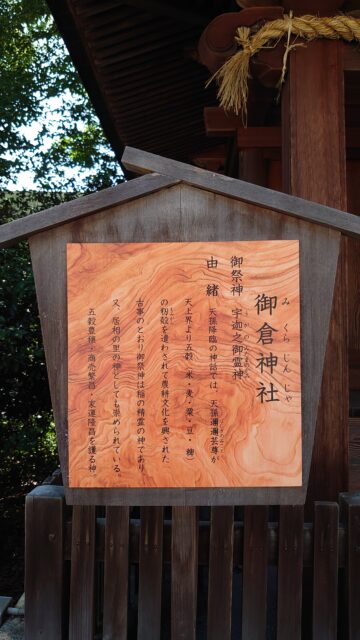 みくらじんじゃ
御倉神社
御祭神 宇迦之御霊神
由緒 天孫降臨の神話では、天孫瀰瀰芸尊が
天上界より五穀(米・麦・粟・豆・稗)
の籾殻を遣わされて農耕文化を興された
古事のとおり御祭神は稲の精霊の神であり
又、居相の里の神としても崇められている。
五穀豊穣・商売繁昌・家運隆昌を護る神。